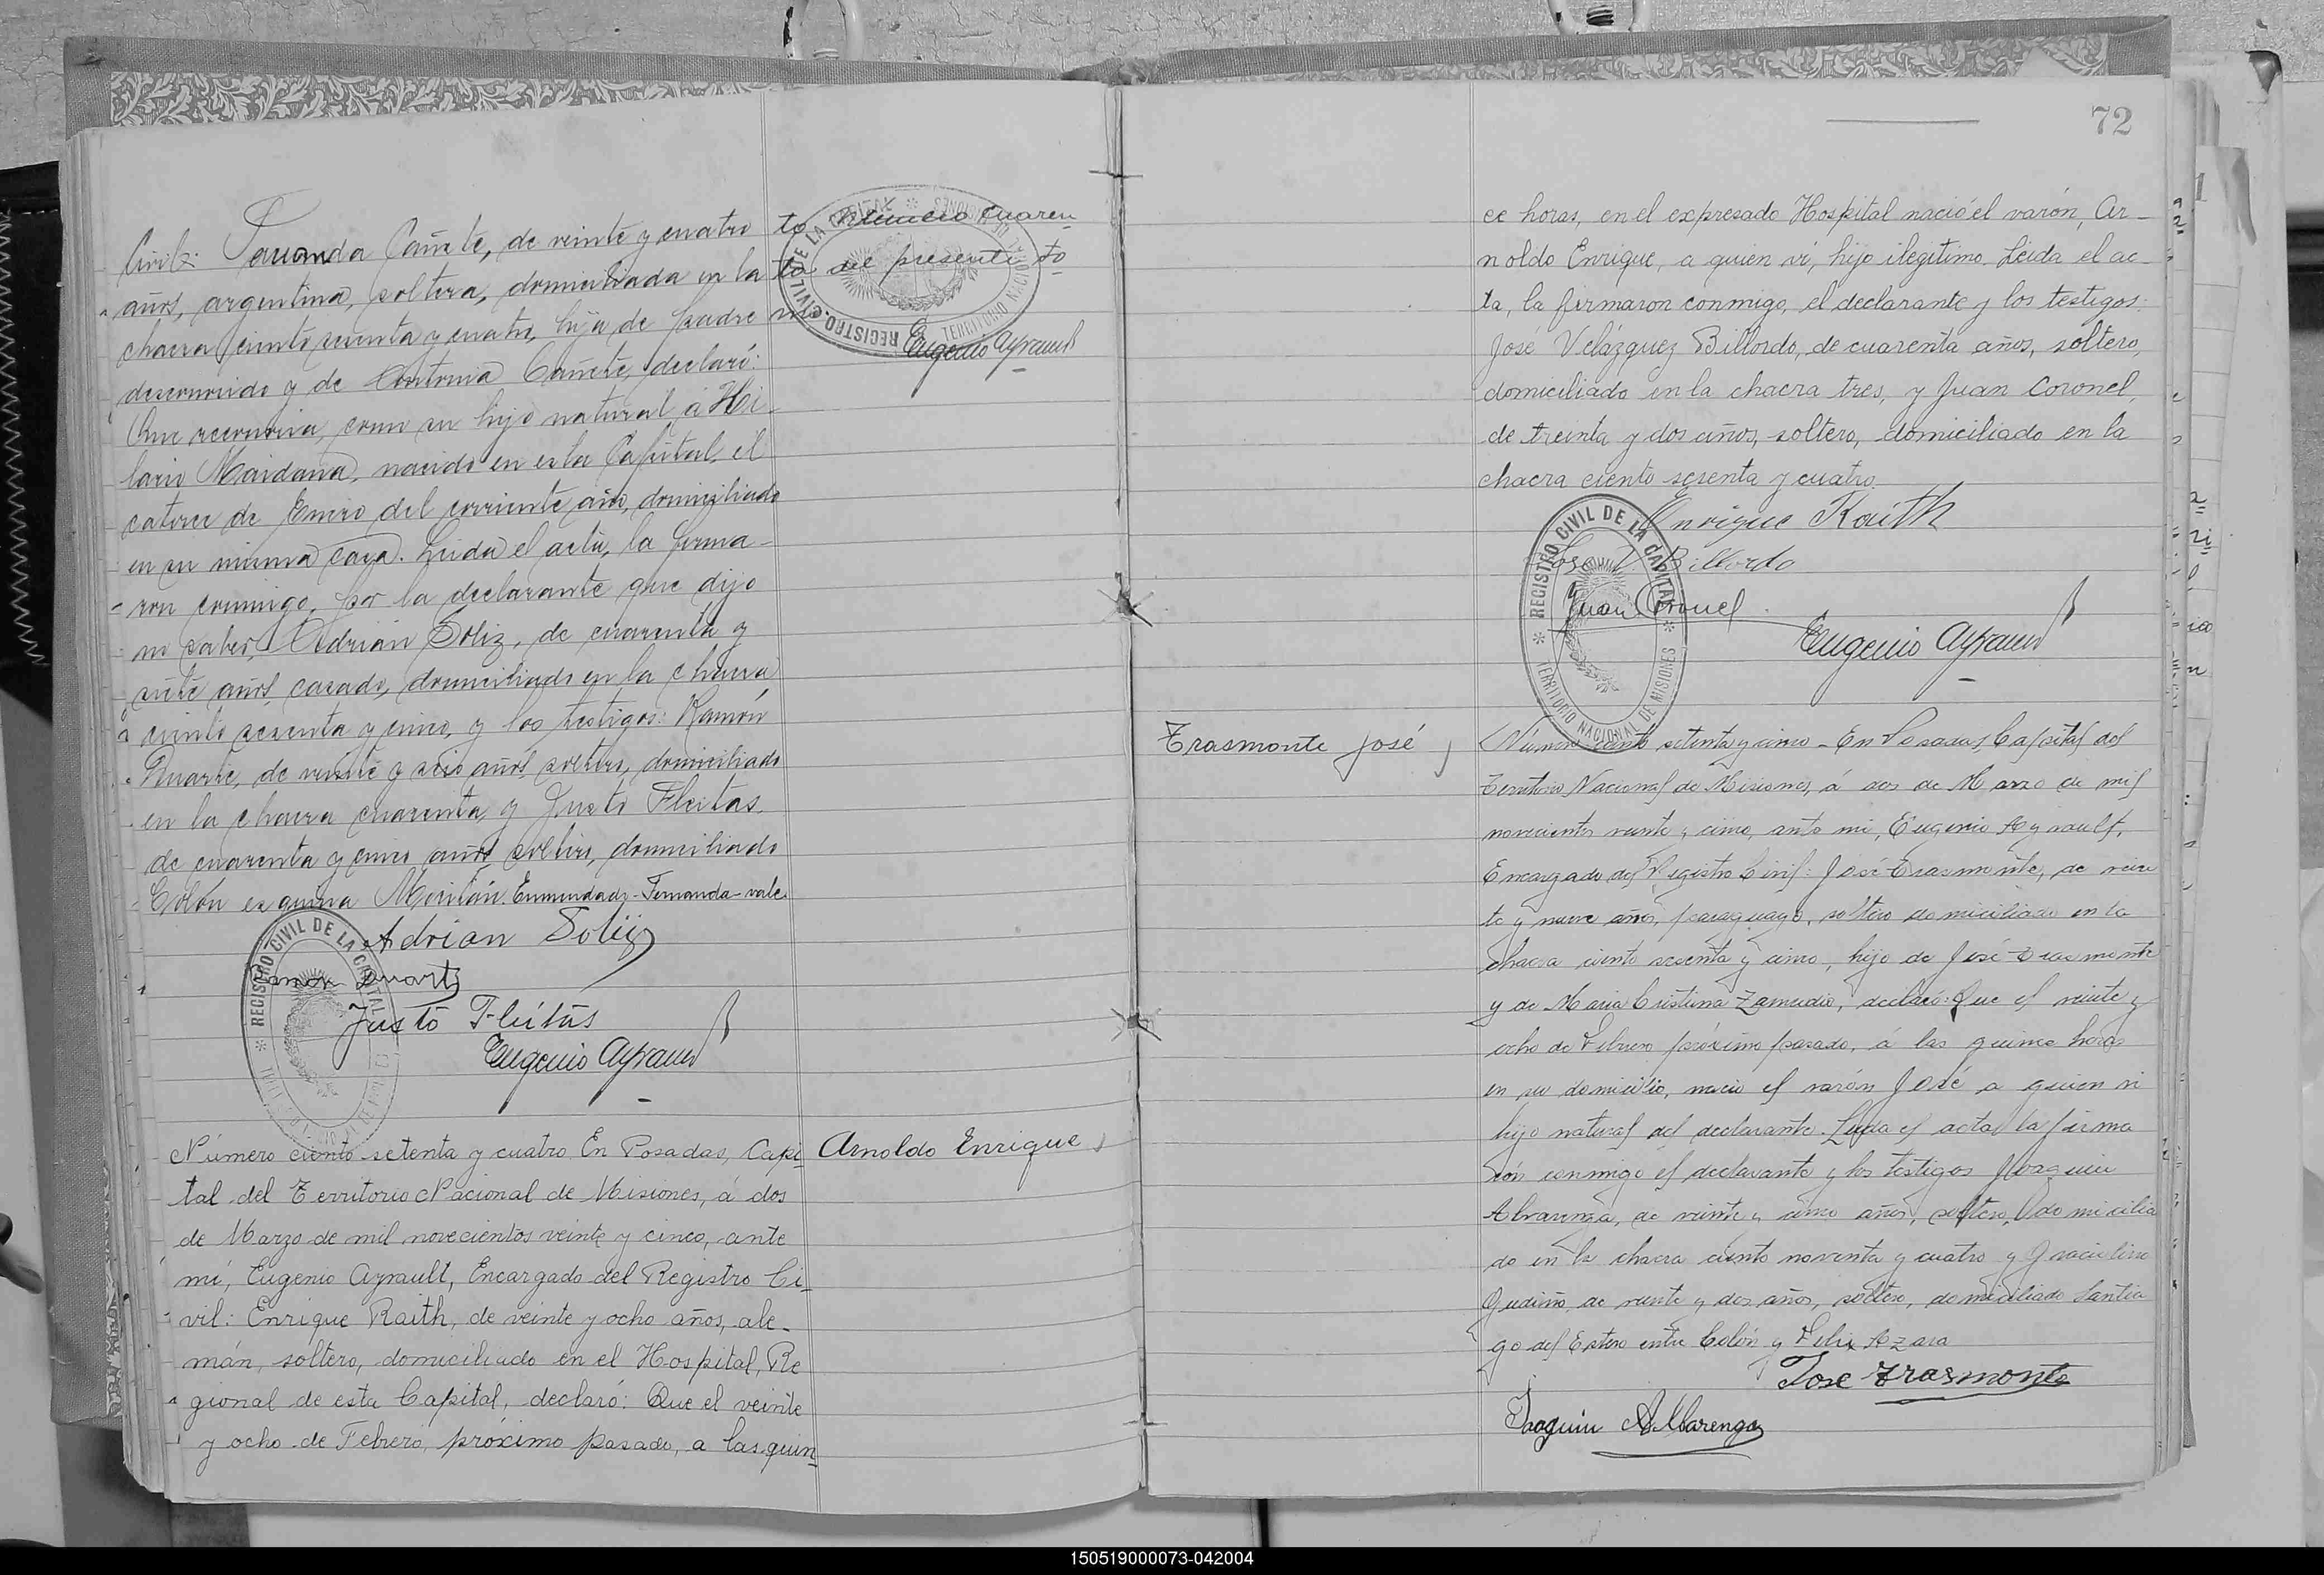 Civil: Fernanda Cañete, de veinte y cuatro
años, argentina, soltera, domiciliada en la
chacra ciento sesenta y cuatro, hija de padre
desconocido y de Cañete, declaró:
Que reconocía, como su hijo natural, á Hi-
lario Maidana, nacido en esta Capital, el
catorce de Enero del corriente año, domiciliado
en su misma casa. Leida el acta, la firma-
ron conmigo, por la declarante que dijo
no saber, Adrián Soliz, de cuarenta y
siete años, casado, domiciliado en la chacra
ciento sesenta y cinco, y los testigos: Ramón
Duarte, de veinte y seis años, soltero, domiciliado
en la chacra cuarenta y Justo Fleitas,
de cuarenta y cinco años, soltero, domiciliado
Colón esquina Mitilán. Enmendado-Fernanda-vale.
Adrian Soliz
Ramon Duarte
Justo Fleitas
Eugenio Ayrault
REGISTRO CIVIL DE LA CAPITAL
to número cuaren-
ta del presente to-
mo.
Eugenio Ayrault
REGISTRO CIVIL DE LA CAPITAL
TERRITORIO NACIONAL DE MISIONES
Número ciento setenta y cuatro. En Posadas, Capi-
tal del Territorio Nacional de Misiones, á dos
de Marzo de mil novecientos veinte y cinco, ante
mí, Eugenio Ayrault, Encargado del Registro Ci-
vil: Enrique Raith, de veinte y ocho años, ale-
mán, soltero, domiciliado en el Hospital, Re
gional de esta Capital, declaró: Que el veinte
y ocho de Febrero, próximo pasado, a las quin-
Arnoldo Enrique
72
ce horas, en el expresado Hospital nació el varón, Ar-
noldo Enrique, a quien ví, hijo ilegitimo. Leida el ac-
ta, la firmaron conmigo, el declarante y los testigos:
José Velázquez Billordo, de cuarenta años, soltero,
domiciliado en la chacra tres, y Juan Coronel,
de treinta y dos años, soltero, domiciliado en la
chacra ciento sesenta y cuatro.
Enrique Raith
Jose V Billordo
Juan Coronel
Eugenio Ayrault
REGISTRO CIVIL DE LA CAPITAL
TERRITORIO NACIONAL DE MISIONES
Trasmonte José
Número ciento setenta y cinco - En Posadas, Capital del
Territorio Nacional de Misiones, á dos de Marzo de mil
novecientos veinte y cinco, ante mi, Eugenio Ayrault,
Encargado del Registro Civil: José Trasmonte, de vein
te y nueve años, paraguayo, soltero domiciliado en la
chacra ciento sesenta y cinco, hijo de José Trasmonte
y de Maria Cristina Zamudio, declaró: Que el veinte y
ocho de Febrero próximo pasado, á las quince horas
en su domicilio, nació el varón José a quien vi
hijo natural del declarante. Leida el acta la firma
ron conmigo el declarante y los testigos Joaquin
Alvarenga, de veinte y cinco años, soltero, domicilia
do en la chacra ciento noventa y cuatro y Graciolino
Gudiño de veinte y dos años, soltero, domiciliado Santia
go del Estero entre Colón y Felix Azara
Jose Trasmonte
Joaquin Allbarenga
150519000073-042004